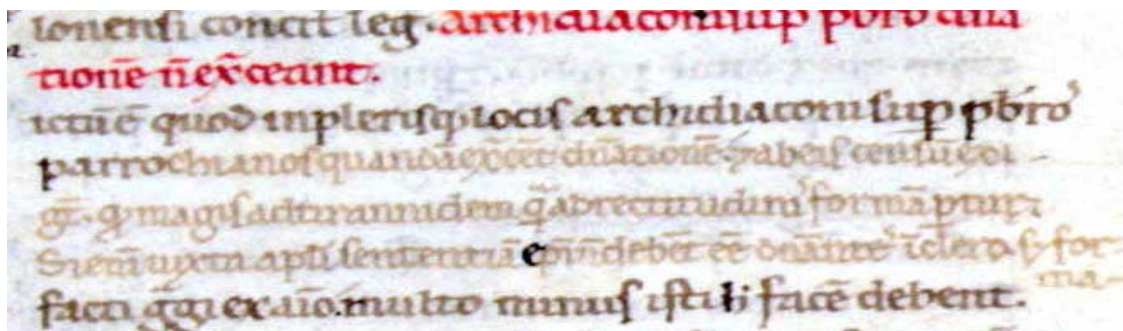 ionensi concil leg. archidiaconi sup pbro dna
tionē n̄ exceant.
ictū ē quod in plerisq; locis archidiaconi sup pbro
parrochianos quandā exceēt dn̄ationē. & ab eis censū exi
gāt. qd magis ad tirannidem quā ad rectitudinis formā ptin&;
Si enī iuxta apli sententiā epi nn̄ debēt eē dn̄antes ī clero sʒ for
ma
facti ggi ex aīo. multo minus isti hi facē debent.